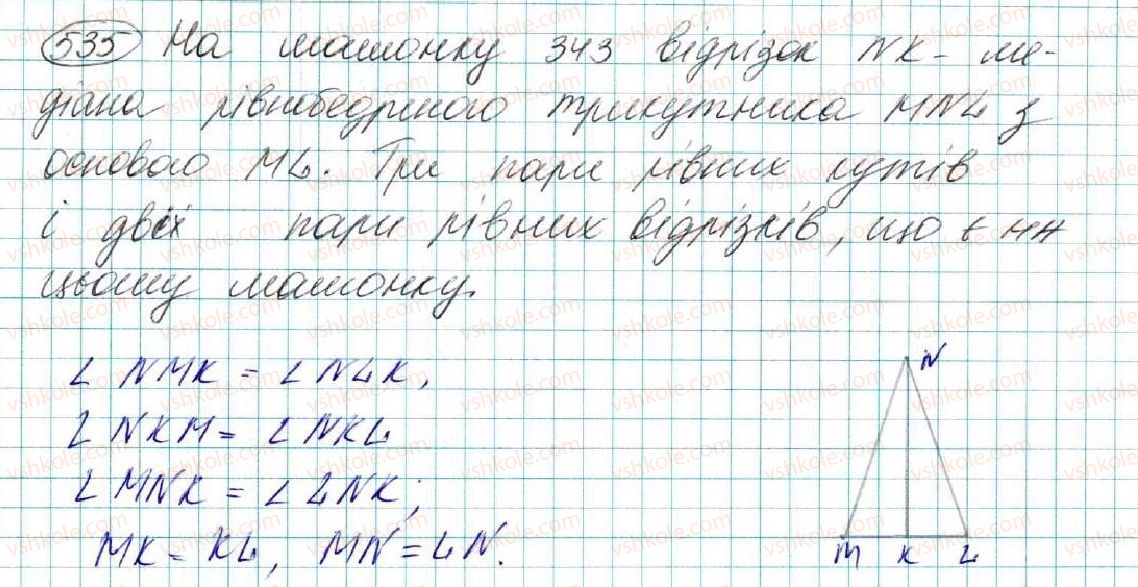 535 На малюнку 343 відрізок NK - ме-
діана рівнобедреного трикутника MNL з
основою ML. Три пари рівних кутів
і двіх пари рівних відрізків, що є на
цьому малюнку.
∠ NMK = ∠ NLK,
∠ NKM = ∠ NKL
∠ MNK = ∠ LNK;
MK = KL, MN = LN.
N
M K L
vshkole.com